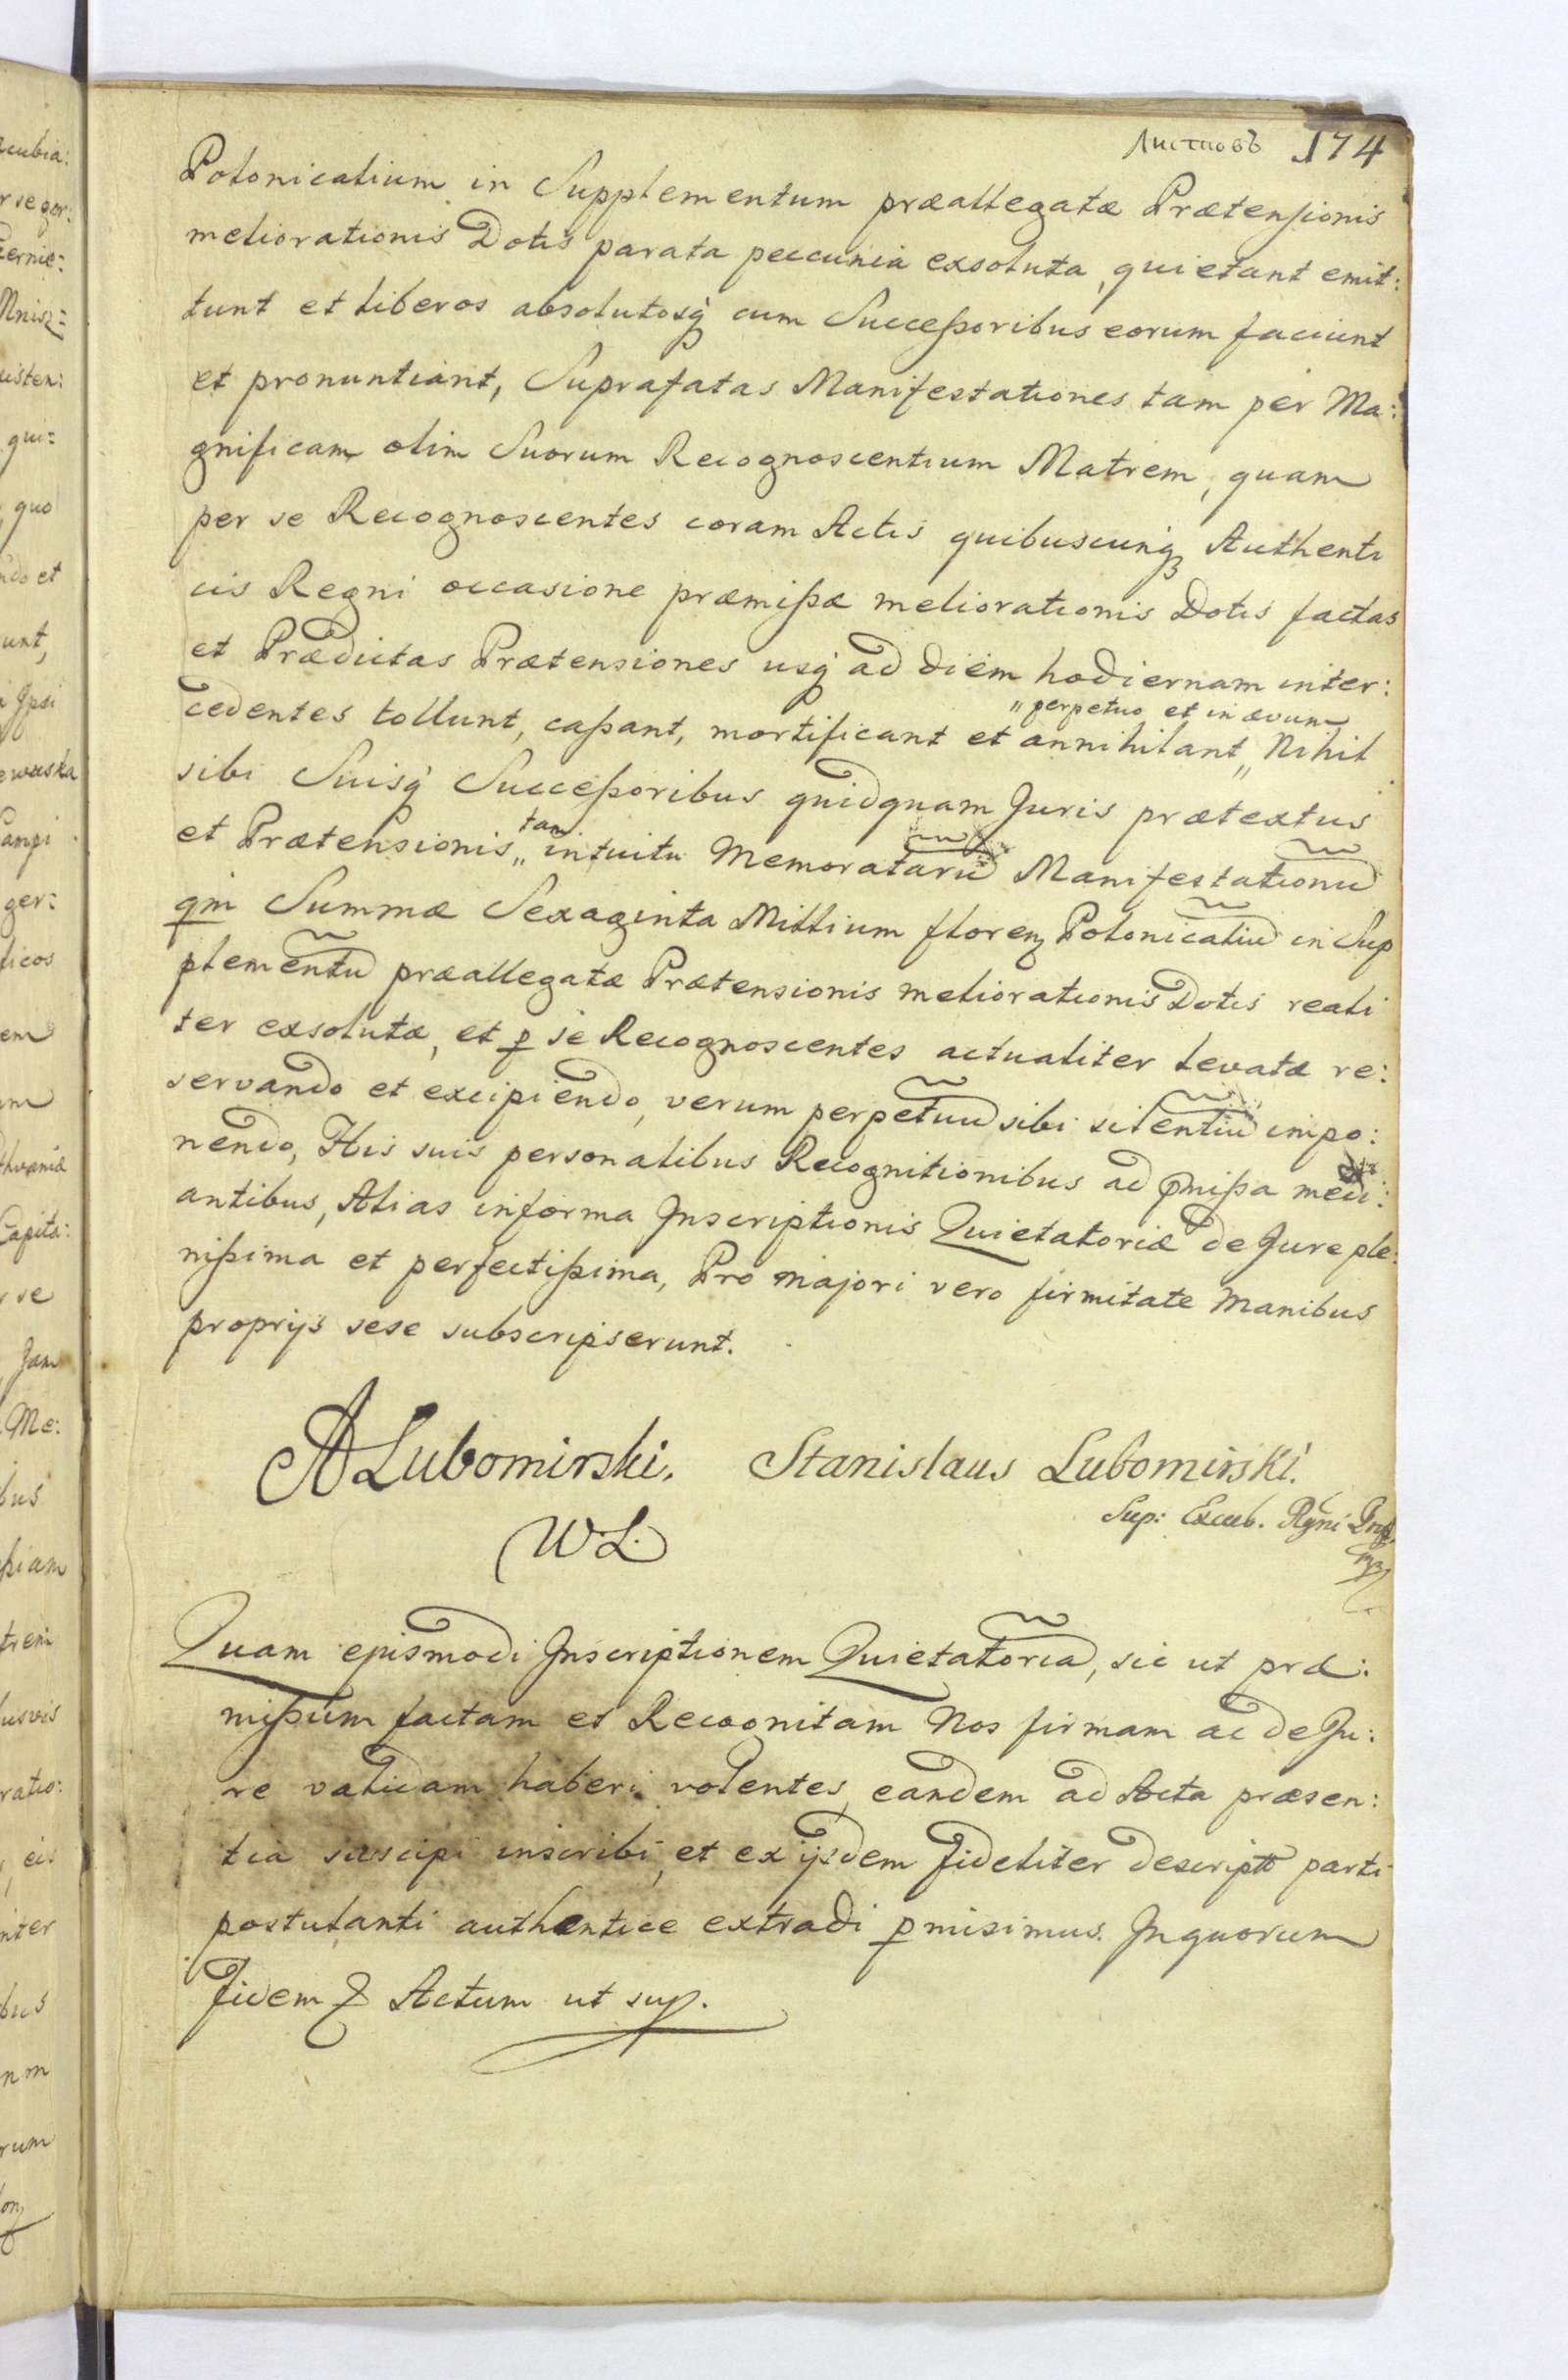 Листовъ 174
Polonicalium in Supplementum præallegatæ Prætensionis
meliorationis Dotis parata peccunia exsoluta, quietant emit:
tunt et liberos absolutosq́ cum Successoribus eorum faciunt
et pronuntiant, Suprafatas Manifestationes tam per Ma:
gnificam olim Suorum Recognoscentium Matrem, quam
per se Recognoscentes coram Actis quibuscunq́ Authenti
cis Regni occasione præmissæ meliorationis Dotis factas
et Prædictas Prætensiones usq́ ad diem hodiernam inter:
„perpetuo et in ævum
cedentes tollunt, cassant, mortificant et annihilant„ Nihil
sibi Suisq́ Successoribus quidquam Juris prætextus
tam
et Prætensionis„ intuitu Memoratarū Manifestationū
qm Summæ Sexaginta Millium floren Polonicaliū in Sup
plementū præallegatæ Prætensionis meliorationis Dotis reali
ter exsolutæ, et p se Recognoscentes actualiter levatæ re:
servando et excipiendo, verum perpetuū sibi silentiū impo:
nendo, His suis personalibus Recognitionibus ad pmissa medi:
antibus, Alias in forma Inscriptionis Quietatoriæ de Jure ple:
nissima et perfectissima, Pro majori vero firmitate Manibus
proprijs sese subscripserunt.
A Lubomirski. Stanislaus Lubomirski.
W L. Sup: Excub. Rgni Prf
mp
Quam ejusmodi Inscriptionem Quietatoriā, sic ut præ:
missum factam et Recognitam Nos firmam ac de Ju:
re validam haberi volentes, eandem ad Acta præsen:
tia suscipi inscribi, et ex ijsdem fideliter descriptā parti
postulanti authentice extradi pmisimus. In quorum
fidem & Actum ut sup.